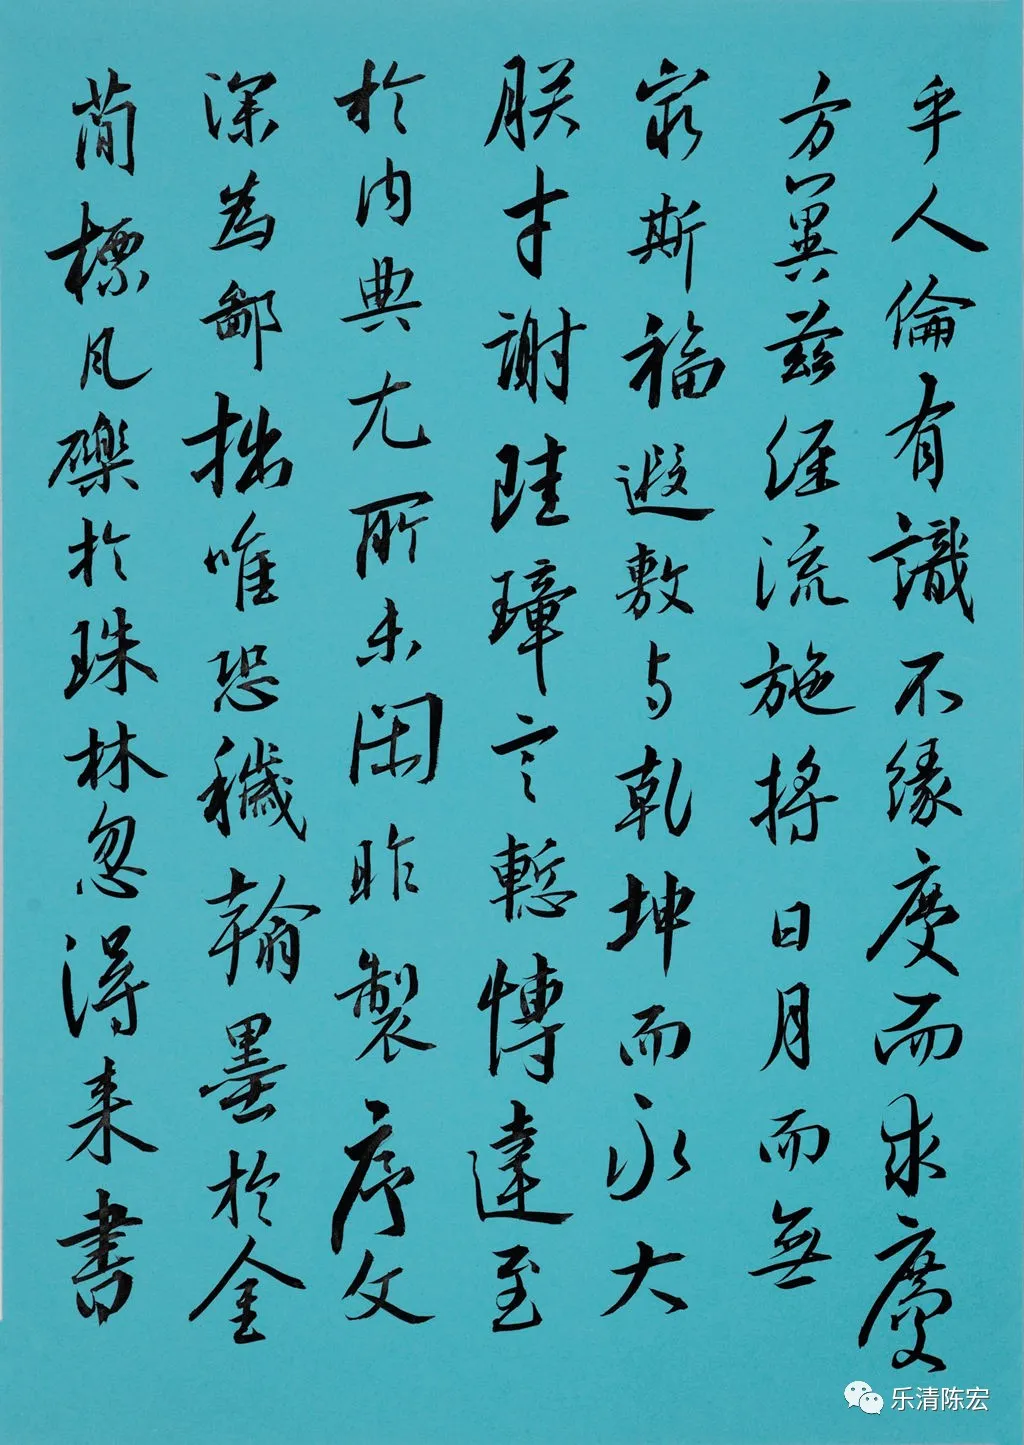 乎人倫有識不緣慶而求慶
方冀茲經流施將日月而無
窮斯福遐敷与乾坤而永大
朕才謝珪璋言慙博達至
於內典尤所未閑昨製序文
深為鄙拙唯恐穢翰墨於金
簡標瓦礫於珠林忽得来書
乐清陈宏